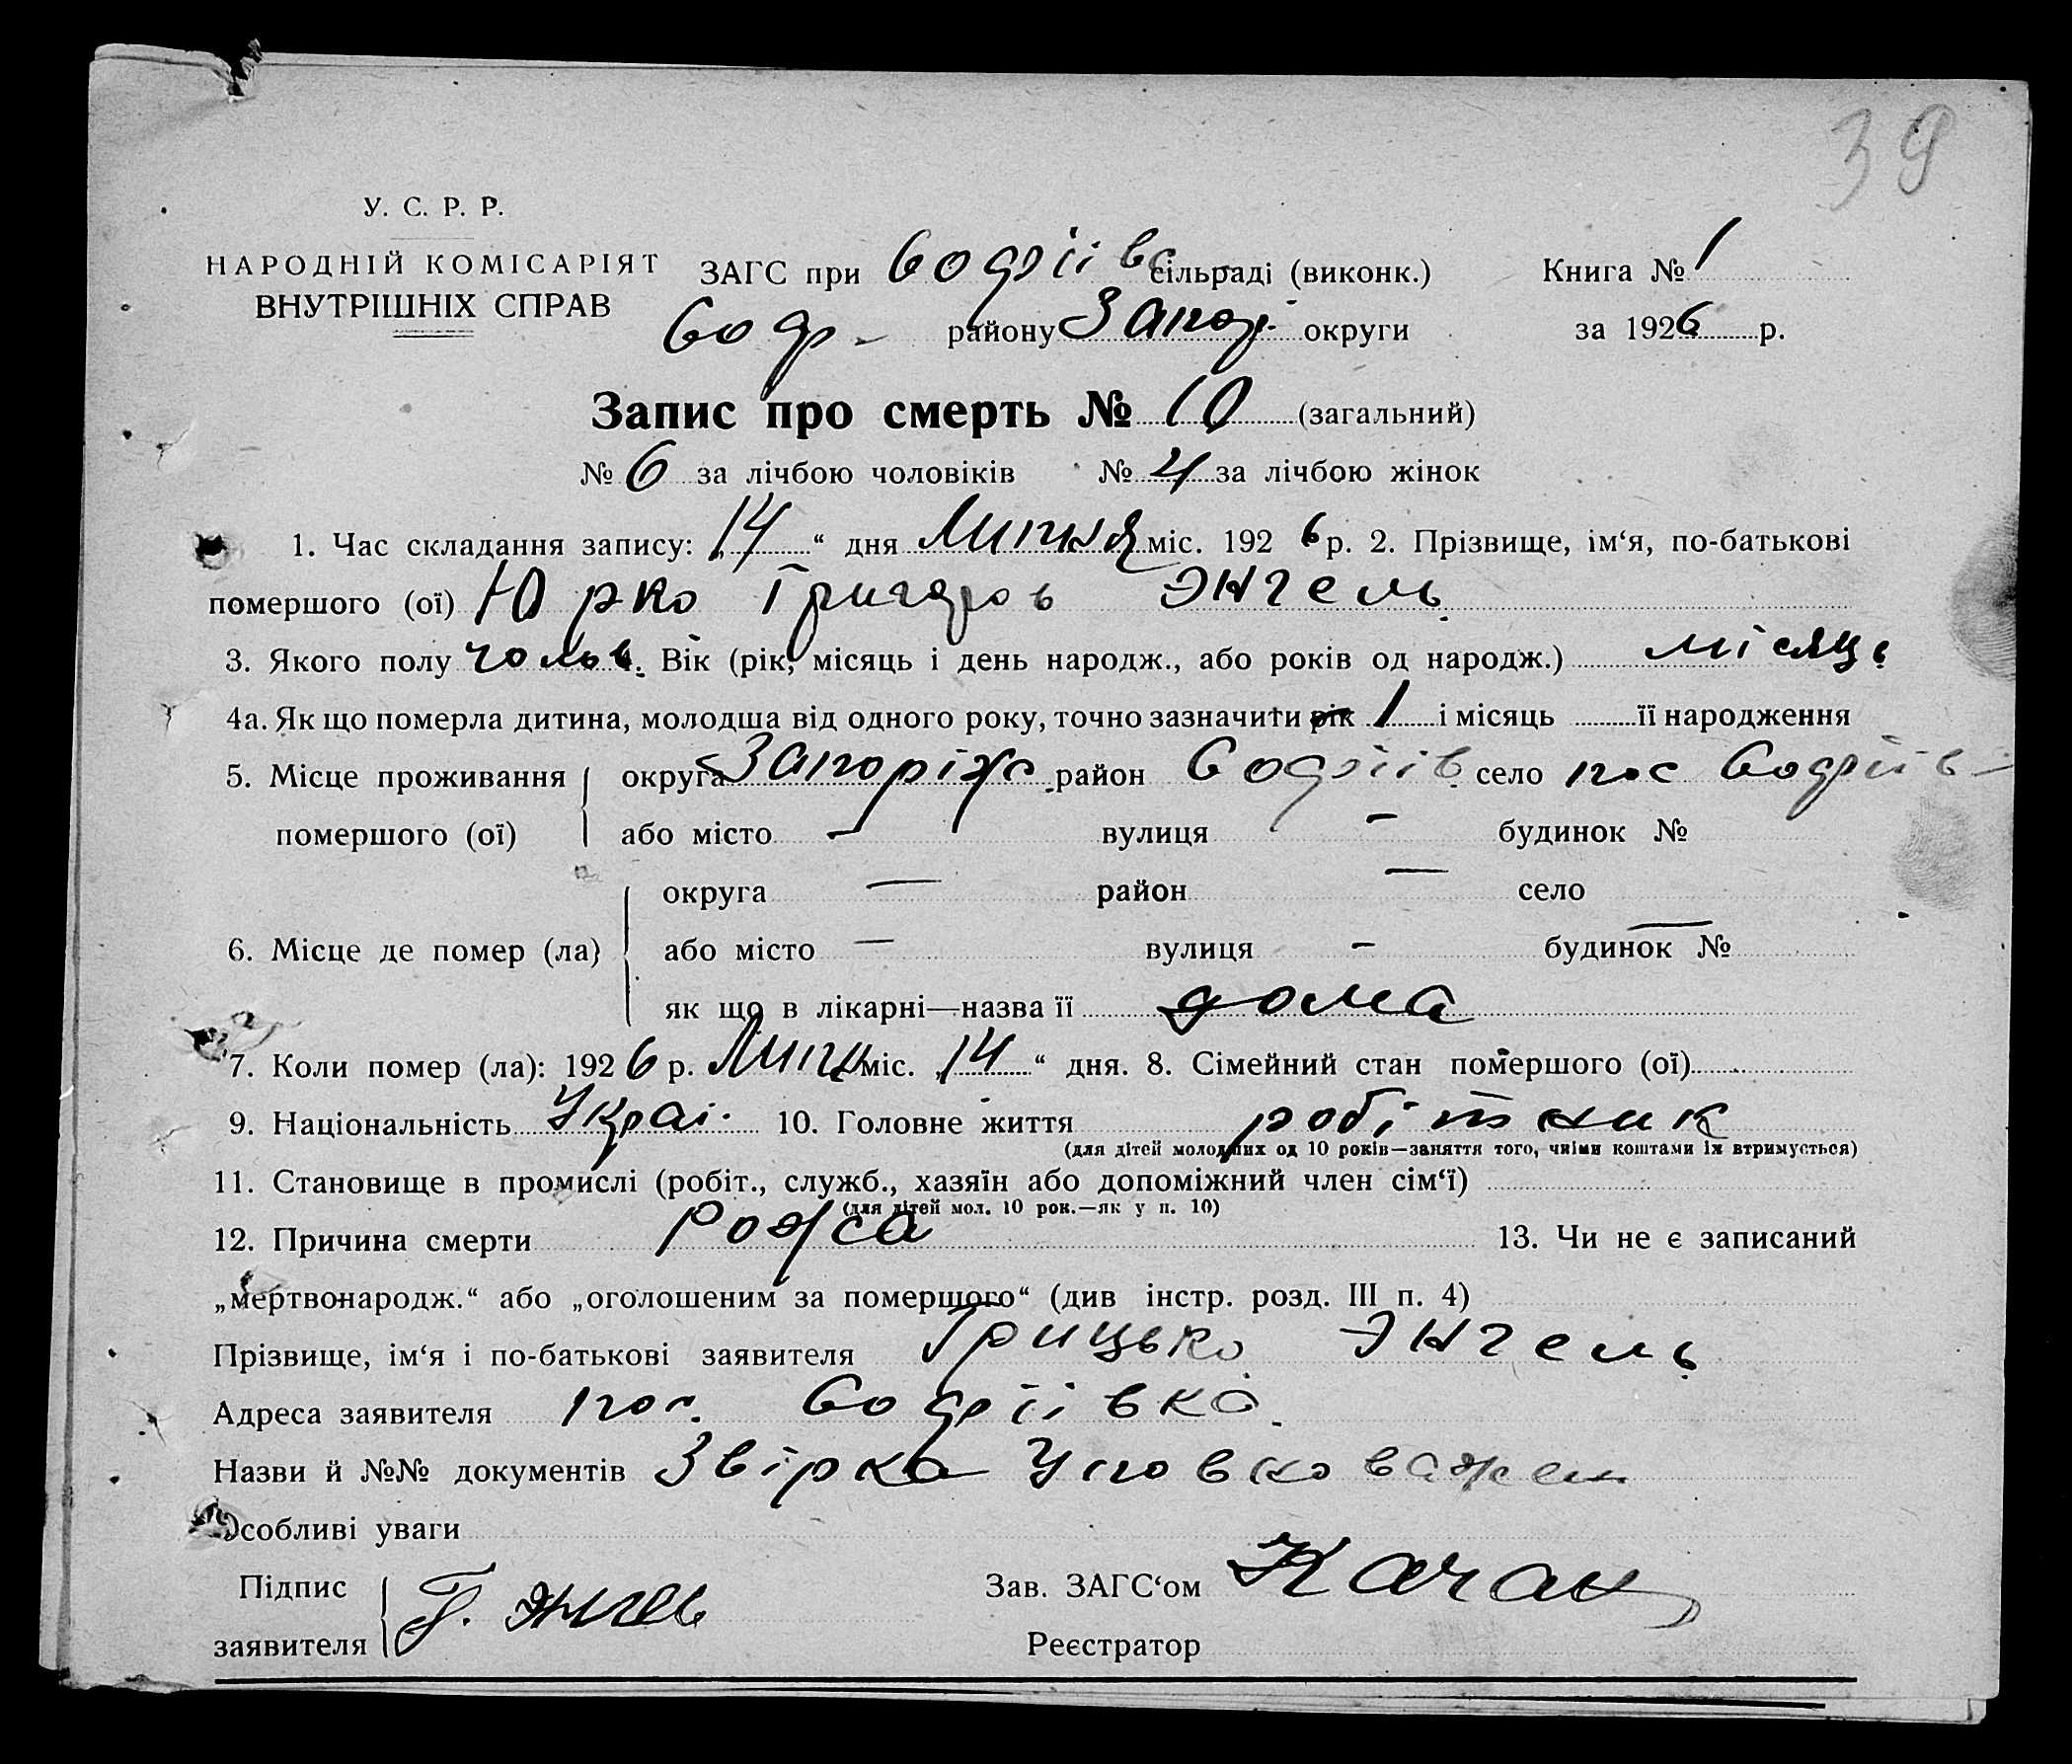 39
У. С. Р. Р.
НАРОДНІЙ КОМІСАРІЯТ
ВНУТРІШНІХ СПРАВ
ЗАГС при Софіївс сільраді (виконк.) Книга № 1
Соф- району Запор. округи за 1926 р.
Запис про смерть № 10 (загальний)
№ 6 за лічбою чоловіків № 4 за лічбою жінок
1. Час складання запису: „14“ дня Липня міс. 1926 р. 2. Прізвище, ім‘я, по-батькові
помершого (ої) Юрко Григоров Энгель
3. Якого полу чолов. Вік (рік, місяць і день народж., або років од народж.) місяць
4а. Як що померла дитина, молодша від одного року, точно зазначити рік 1 і місяць її народження
5. Місце проживання округа Запоріж. район Софіїв. село пос Софіїв-
помершого (ої) або місто — вулиця — будинок №
округа — район — село
6. Місце де помер (ла) або місто — вулиця — будинок № —
як що в лікарні—назва її дома
7. Коли помер (ла): 1926 р. Липн міс. „14“ дня. 8. Сімейний стан помершого (ої)
9. Національність Украі. 10. Головне життя робітник
(для дітей молодших од 10 років—заняття того, чиїми коштами їх втримується)
11. Становище в промислі (робіт., служб., хазяїн або допоміжний член сім‘ї)
(для дітей мол. 10 рок.—як у п. 10)
12. Причина смерти Рожа 13. Чи не є записаний
„мертвонародж.“ або „оголошеним за помершого“ (див інстр. розд. III п. 4)
Прізвище, ім‘я і по-батькові заявителя Грицько Энгель
Адреса заявителя пос. Софіївка.
Назви й №№ документів Звірка Уповноважен
Особливі уваги
Підпис Г. Энгель Зав. ЗАГС‘ом Качан
заявителя Реєстратор